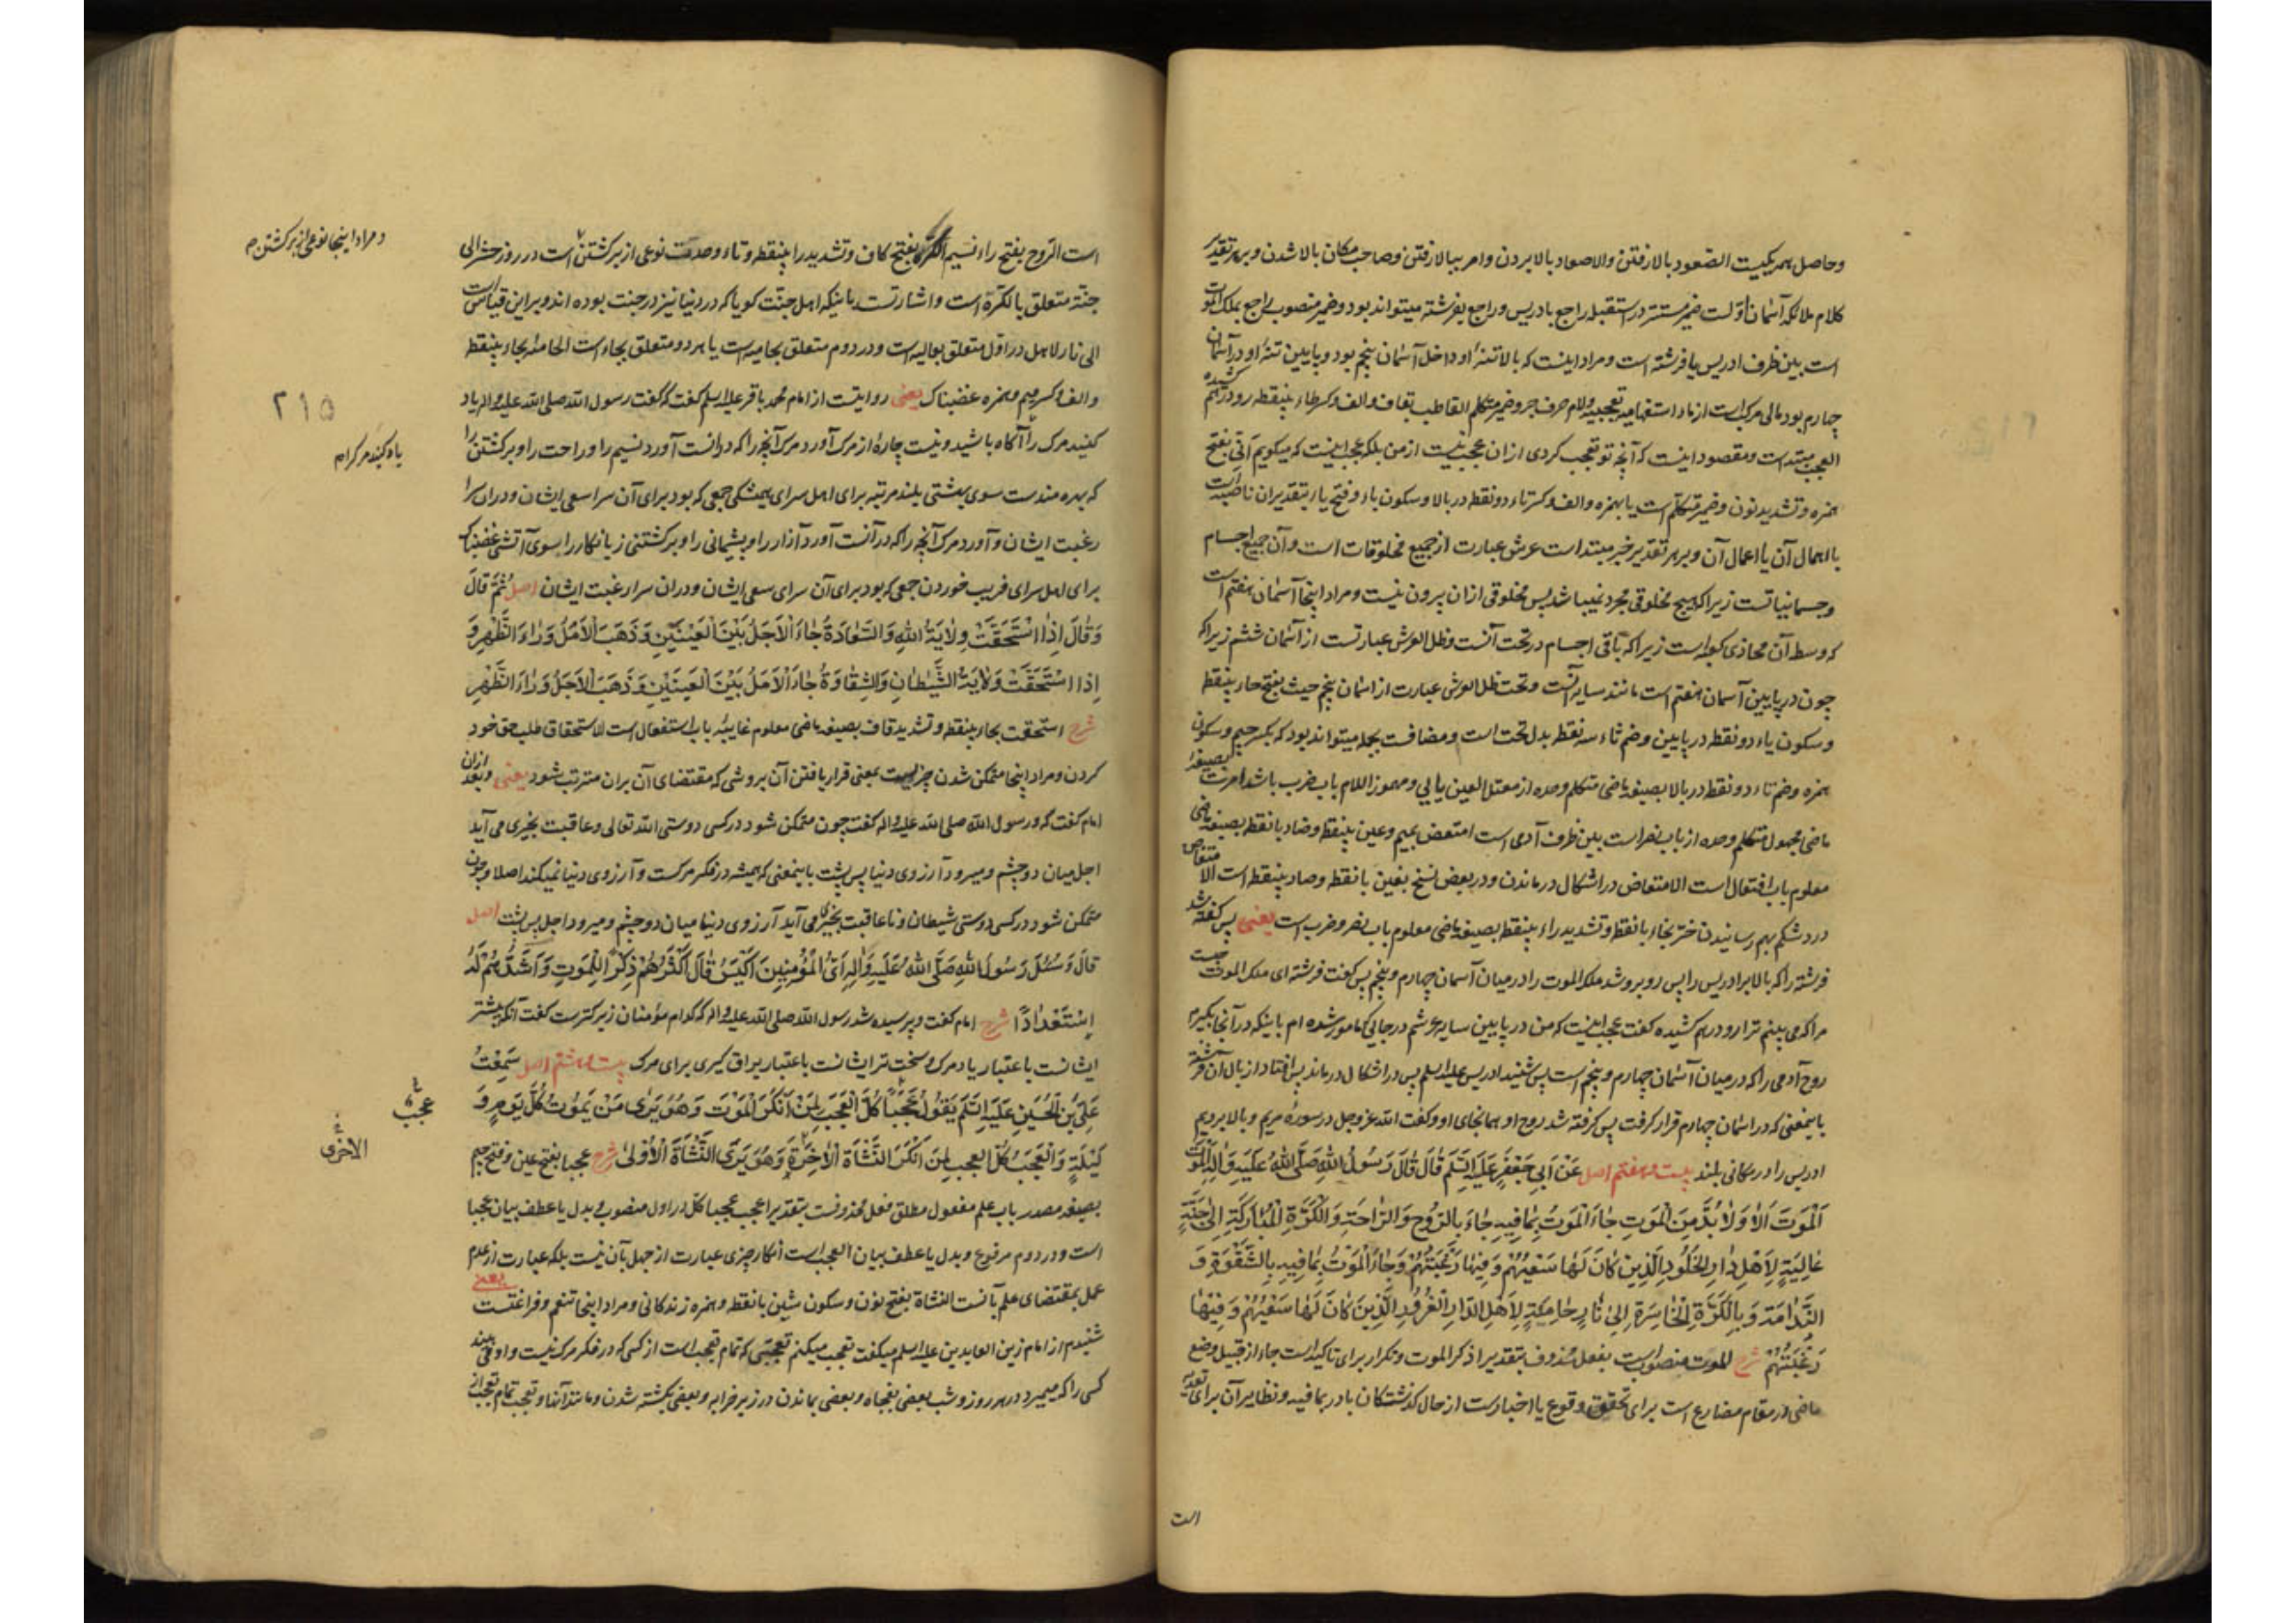 وحاصل هر یکیست الصّعود بالا رفتن والاصعاد بالا بردن وامر ببالا رفتن وصاحب مکان بالا شدن وبر هر تقدیر
کلام ملائکه آسمان اوّلست ضمیر مستتر در استقبله راجع بادریس وراجع بفرشته میتواند بود وضمیر منصوب راجع بملک الموت
است بین ظرف ادریس یا فرشته است ومراد اینست که بالا تنهٔ او داخل آسمان پنجم بود وپایین تنهٔ او در آسمان
چهارم بود مالی مرکب است از ماء استفهامیه تعجبیه ولام حرف جر وضمیر متکلم القاطب بقاف والف وکسر طاء بینقطه رو درهم کشیده
العجب مبتداست ومقصود اینست که آنچه تو تعجب کردی از ان عجب نیست از من بلکه عجب اینست که میکویم انّی بفتح
همزه وتشدید نون وضمیر متکلم است یا بهمزه والف وکسر تاء دو نقطه در بالا وسکون یاء وفتح یاء بتقدیر ان ناصبه است
با اهمال آن یا اعمال آن وبر هر تقدیر خبر مبتداست عرش عبارت از جمیع مخلوقات است وآن جمیع اجسام
وجسمانیاتست زیرا که هیچ مخلوقی مجرد نمیباشد پس مخلوقی ازان بیرون نیست ومراد اینجا آسمان هفتم است
که وسط آن محاذی کعبه است زیرا که باقی اجسام در تحت آنست وظل العرش عبارتست از آسمان ششم زیرا که
چون در پایین آسمان هفتم است مانند سایه آنست وتحت ظل العرش عبارت از اسمان پنجم حیث بفتح حاء بینقطه
وسکون یاء دو نقطه در پایین وضم ثاء سه نقطه بدل تحت است ومضافست بجمله میتواند بود که بکسر جیم وسکون
همزه وضم تاء دو نقطه در بالا بصیغهٔ ماضی متکلم وحده از معتل العین یایی ومهموز اللام باب ضرب باشد امرت بصیغهٔ
ماضی مجهول متکلم وحده از باب نصر است بین ظرف آدمی است امتعض بمیم وعین بینقطه وضاد بانقطه بصیغه ماضی
معلوم باب افتعال است الامتعاض در اشکال در ماندن ودر بعض نسخ بغین بانقطه وصاد بینقطه است الامتغاص
درد شکم بهم رسانیدن خرّ بخاء بانقطه وتشدید راء بینقطه بصیغه ماضی معلوم باب نصر وضرب است یعنی پس گفته شد
فرشته را که بالا بر ادریس را پس روبرو شد ملک الموت را در میان آسمان چهارم وپنجم پس کفت فرشته ای ملک الموت چیست
مرا که می بینم ترا رو درهم کشیده کفت عجب اینست که من در پایین سایه عرشم در جایی که مامور شده ام باینکه در آنجا بگیرم
روح آدمی را که در میان آسمان چهارم وپنجم است پس شنید ادریس علیه السلم پس در اشکال در ماند پس افتاد از بال آن فرشته
باینمعنی که در اسمان چهارم قرار کرفت پس کرفته شد روح او همانجای او وکفت الله عز وجل در سورهٔ مریم وبالا بردیم
ادریس را در مکانی بلند بیست وهفتم اصل عَنْ اَبِی جَعْفَرٍ عَلَیْهِ السَّلَمُ قَالَ قَالَ رَسُولُ اللهِ صَلَّی اللهُ عَلَیْهِ وَاٰلِهِ الْمَوْتَ
اَلْمَوْتَ اَلَا وَلَا بُدَّ مِنَ الْمَوْتِ جَاءَ الْمَوْتُ بِمَا فِیهِ جَاءَ بِالرَّوْحِ وَالرَّاحَةِ وَالْکَرَّةِ الْمُبَارَکَةِ اِلَی جَنَّةٍ
عَالِیَةٍ لِاَهْلِ دَارِ الْخُلُودِ الَّذِینَ کَانَ لَهَا سَعْیُهُمْ وَفِیهَا رَغْبَتُهُمْ وَجَاءَ الْمَوْتُ بِمَا فِیهِ بِالشَّقْوَةِ وَ
النَّدَامَةِ وَبِالْکَرَّةِ الْخَاسِرَةِ اِلَی نَارٍ حَامِیَةٍ لِاَهْلِ الدَّارِ الْغُرُورِ الَّذِینَ کَانَ لَهَا سَعْیُهُمْ وَفِیهَا
رَغْبَتُهُمْ شرح الموت منصوب است بفعل محذوف بتقدیر اذکر الموت وتکرار برای تاکید است جاء از قبیل وضع
ماضی در مقام مضارع است برای تحقق وقوع یا اخبارست از حال کذشتکان باء در بما فیه ونظایر آن برای تعدیه
است
است الرّوح بفتح راء نسیم الکرّة بفتح کاف وتشدید را بینقطه وتاء وحدت نوعی از برکشتن است در روز حشر الی
جنّة متعلق بالکرّة است واشارتست باینکه اهل جنّت کویا که در دنیا نیز در جنت بوده اند وبراین قیاس است
الی نار لاهل در اوّل متعلق بعالیه است ودر دوم متعلق بحامیه است یا هر دو متعلق بجاء است الحامئة بحاء بینقطه
والف وکسر میم وهمزه غضبناک یعنی روایتست از امام محمد باقر علیه السلم کفت که کفت رسول الله صلی الله علیه واله یاد
کنید مرک را آکاه باشید ونیست چارهٔ از مرک آورد مرک آنچه را که در انست آورد نسیم را وراحت را وبرکشتن را
که بهره مندست سوی بهشتی بلند مرتبه برای اهل سرای همیشکی جمعی که بود برای آن سرا سعی ایشان ودران سرا
رغبت ایشان وآورد مرک آنچه را که در آنست آورد آزار را وپشیمانی را وبرکشتنی زیانکار را سوی آتشی غضبناک
برای اهل سرای فریب خوردن جمعی که بود برای آن سرای سعی ایشان ودران سرا رغبت ایشان اصل ثُمَّ قَالَ
وَقَالَ اِذَا اسْتَحَقَّتْ وِلَایَةُ اللهِ وَالسَّعَادَةُ جَاءَ الْاَجَلُ بَیْنَ الْعَیْنَیْنِ وَذَهَبَ الْاَمَلُ وَرَاءَ الظَّهْرِ وَ
اِذَا اسْتَحَقَّتْ وَلَایَةُ الشَّیْطَانِ وَالشَّقَاوَةُ جَاءَ الْاَمَلُ بَیْنَ الْعَیْنَیْنِ وَذَهَبَ الْاَجَلُ وَرَاءَ الظَّهْرِ
شرح استحقت بحاء بینقطه وتشدید قاف بصیغه ماضی معلوم غایبه باب استفعال است الاستحقاق طلب حق خود
کردن ومراد اینجا متمکن شدن چیزیست بمعنی قرار یافتن آن بروشی که مقتضای آن بران مترتب شود یعنی وبعد ازان
امام کفت که ورسول الله صلی الله علیه واله کفت چون متمکن شود در کسی دوستی الله تعالی وعاقبت بخیری می آید
اجل میان دو چشم ومیرود آرزوی دنیا پس پشت باینمعنی که همیشه در فکر مرکست وآرزوی دنیا نمیکند اصلا وچون
متمکن شود در کسی دوستی شیطان ونا عاقبت بخیری می آید آرزوی دنیا میان دو چشم ومیرود اجل پس پشت اصل
قَالَ وَسُئِلَ رَسُولُ اللهِ صَلَّی اللهُ عَلَیْهِ وَاٰلِهِ اَیُّ الْمُؤْمِنِینَ اَکْیَسُ قَالَ اَکْثَرُهُمْ ذِکْرًا لِلْمَوْتِ وَاَشَدُّهُمْ لَهُ
اِسْتِعْدَادًا شرح امام کفت وپرسیده شد رسول الله صلی الله علیه واله که کدام مؤمنان زیرکترست کفت آنکه بیشتر
ایشانست باعتبار یاد مرک وسخت تر ایشانست باعتبار یراق کیری برای مرک بیست وهشتم اصل سَمِعْتُ
عَلِیَّ بْنَ الْحُسَیْنِ عَلَیْهِ السَّلَمُ یَقُولُ عَجَبًا کُلَّ الْعَجَبِ لِمَنْ اَنْکَرَ الْمَوْتَ وَهُوَ یَرَی مَنْ یَمُوتُ کُلَّ یَوْمٍ وَ
لَیْلَةٍ وَالْعَجَبُ کُلُّ الْعَجَبِ لِمَنْ اَنْکَرَ النَّشْأَةَ الْاٰخِرَةَ وَهُوَ یَرَی النَّشْأَةَ الْاُولَی شرح عجبا بفتح عین وفتح جیم
بصیغه مصدر باب علم مفعول مطلق فعل محذوفست بتقدیر اعجب عجبا کل در اول منصوب وبدل یا عطف بیان عجبا
است ودر دوم مرفوع وبدل یا عطف بیان العجب است انکار چیزی عبارت از جهل بآن نیست بلکه عبارت از عدم
عمل بمقتضای علم بآنست النشاة بفتح نون وسکون شین بانقطه وهمزه زندکانی ومراد اینجا تنعم وفراغتست یعنی
شنیدم از امام زین العابدین علیه السلم میکفت تعجب میکنم تعجبی که تمام تعجب است از کسی که در فکر مرک نیست واو می بیند
کسی را که میمیرد در هر روز وشب بعضی بفجاه وبعضی بماندن در زیر خرابه وبعضی بکشته شدن ومانند آنها وتعجب تمام تعجب از
ومراد اینجا نوعی از برکشتن
۲۱۵
یاد کنید مرک را
عجب
الاخری